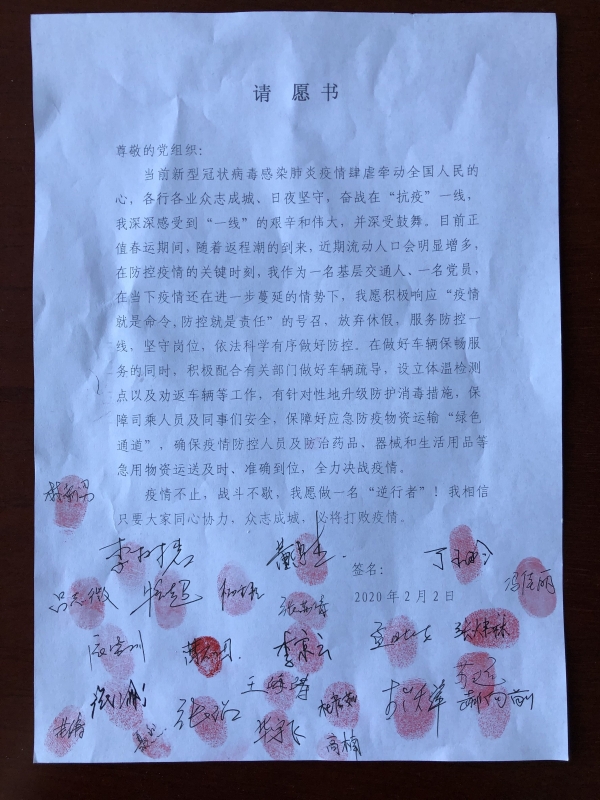 请愿书
尊敬的党组织：
当前新型冠状病毒感染肺炎疫情肆虐牵动全国人民的
心，各行各业众志成城、日夜坚守，奋战在“抗疫”一线，
我深深感受到“一线”的艰辛和伟大，并深受鼓舞。目前正
值春运期间，随着返程潮的到来，近期流动人口会明显增多，
在防控疫情的关键时刻，我作为一名基层交通人、一名党员，
在当下疫情还在进一步蔓延的情势下，我愿积极响应“疫情
就是命令，防控就是责任”的号召，放弃休假，服务防控一
线，坚守岗位，依法科学有序做好防控。在做好车辆保畅服
务的同时，积极配合有关部门做好车辆疏导，设立体温检测
点以及劝返车辆等工作，有针对性地升级防护消毒措施，保
障司乘人员及同事们安全，保障好应急防疫物资运输“绿色
通道”，确保疫情防控人员及防治药品、器械和生活用品等
急用物资运送及时、准确到位，全力决战疫情。
疫情不止，战斗不歇，我愿做一名“逆行者”！我相信
只要大家同心协力，众志成城，必将打败疫情。
签名：
冯佳丽
吕志微
2020年2月2日
李京云
高楠